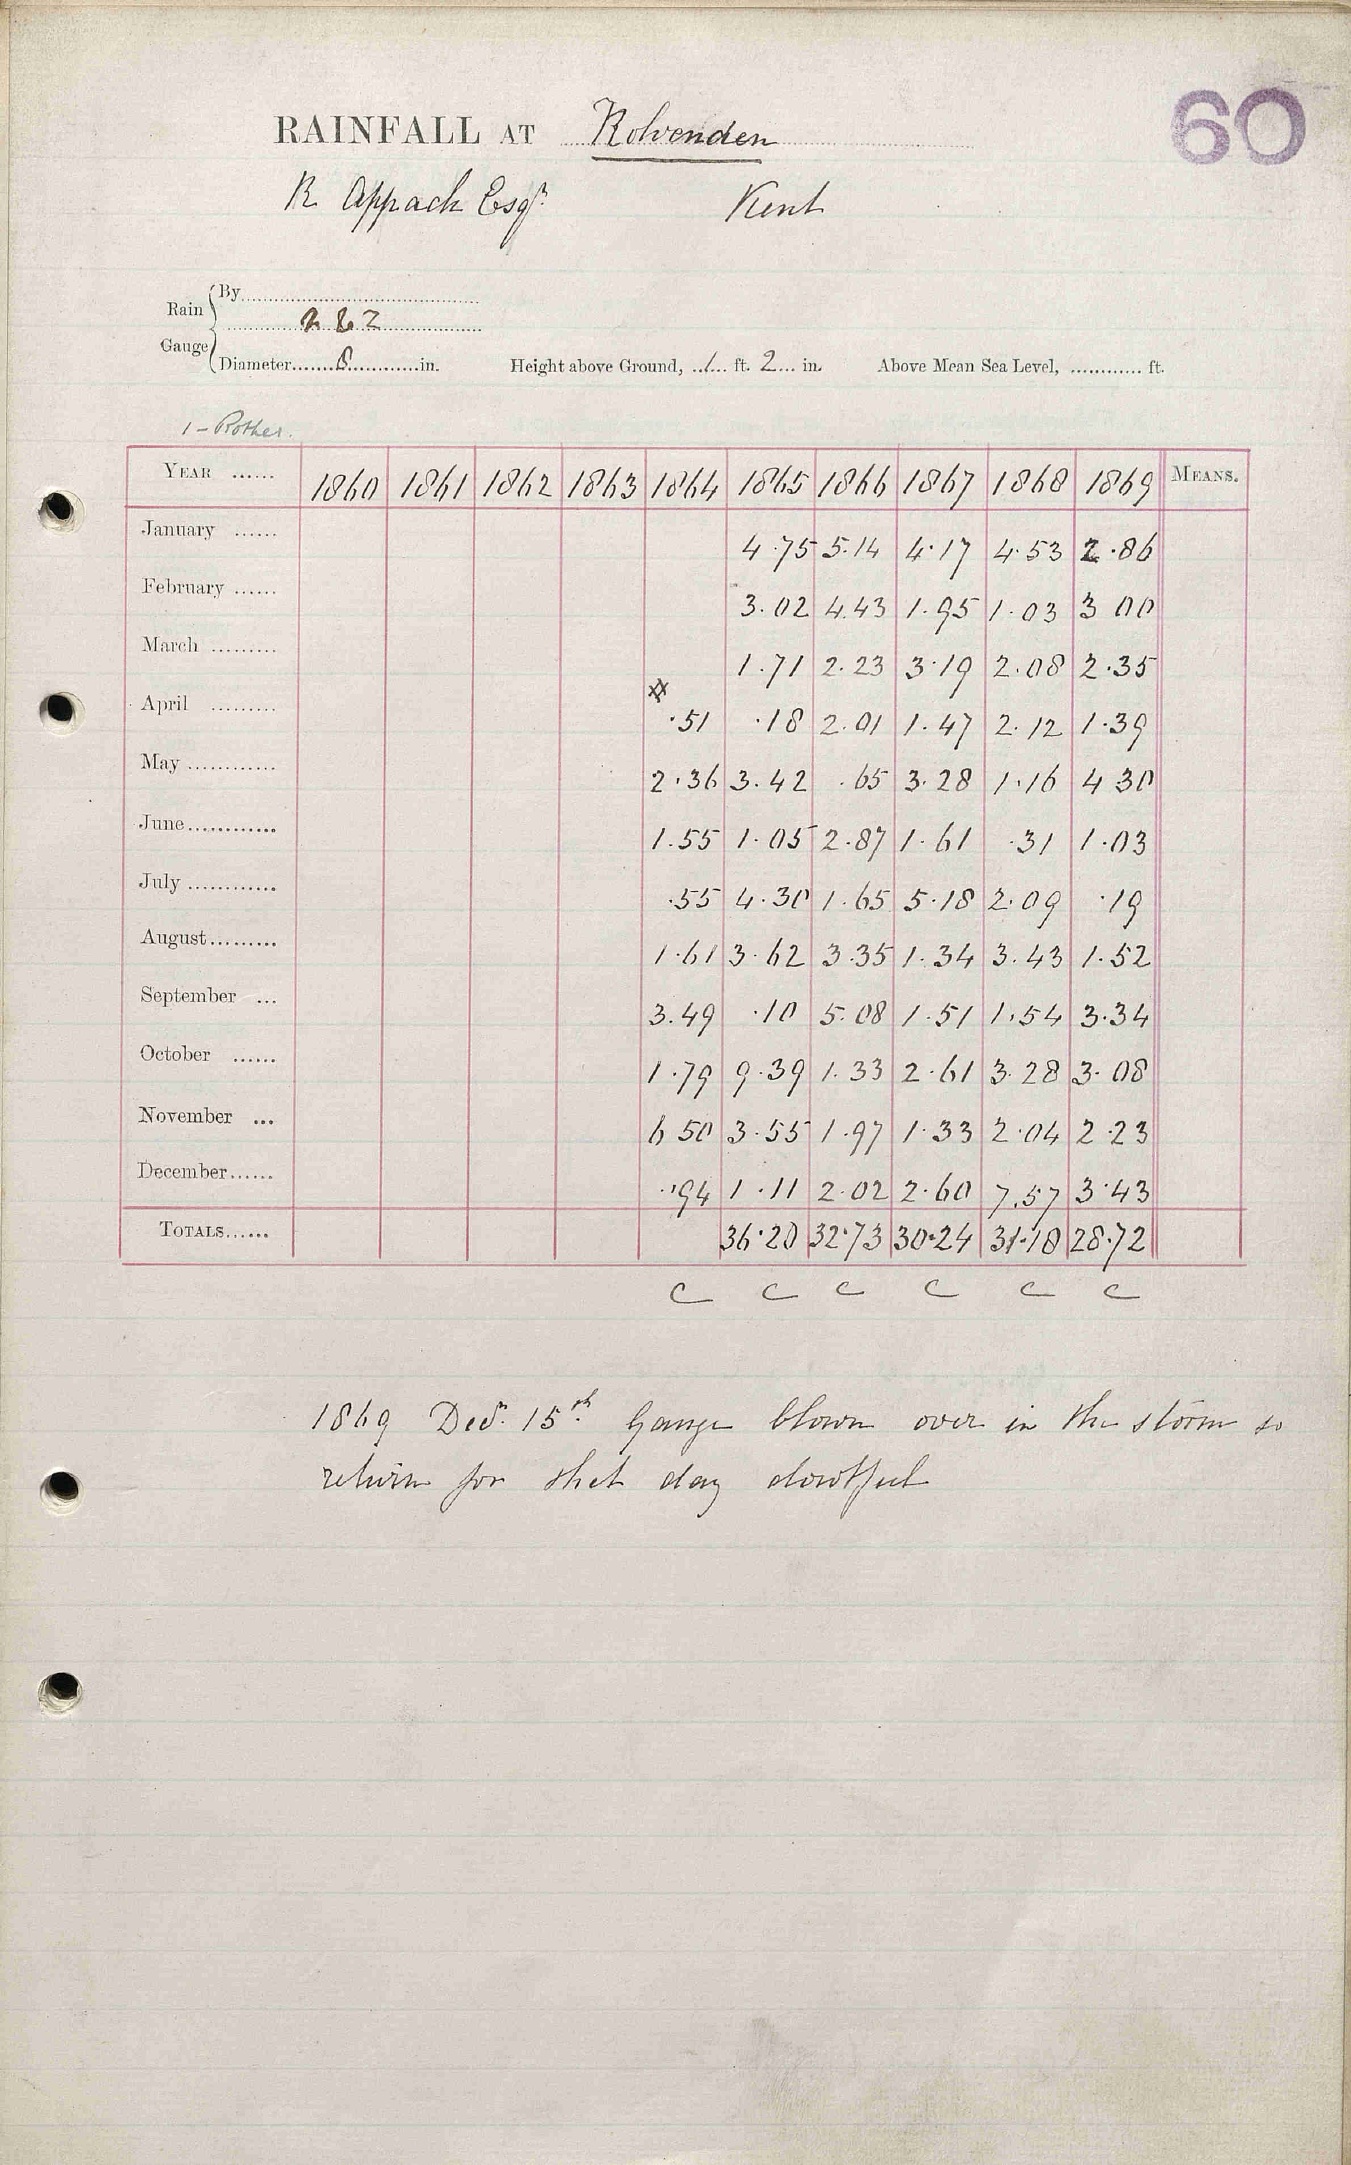 60
RAINFALL AT Rolvenden
R Appach Esqr. Kent
Rain Gauge
By
Diameter 8 in. Height above Ground, 1 ft. 2 in. Above Mean Sea Level, ............ ft.
1 - Rother.
YEAR ...... 1860 1861 1862 1863 1864 1865 1866 1867 1868 1869 MEANS.
January ...... 4.75 5.14 4.17 4.53 2.86
February ...... 3.02 4.43 1.95 1.03 3 00
March ......... 1.71 2.23 3.19 2.08 2.35
April ......... .51 .18 2.01 1.47 2.12 1.39
May ............ 2.36 3.42 .65 3.28 1.16 4 30
June............ 1.55 1.05 2.87 1.61 .31 1.03
July ............ .55 4.30 1.65 5.18 2.09 .19
August......... 1.61 3.62 3.35 1.34 3.43 1.52
September ... 3.49 .10 5.08 1.51 1.54 3.34
October ...... 1.79 9.39 1.33 2.61 3.28 3.08
November ... 6 50 3.55 1.97 1.33 2.04 2.23
December...... .94 1.11 2.02 2.60 7.57 3.43
TOTALS...... 36.20 32.73 30.24 31.18 28.72
C C C C C C
1869 Decr. 15th. Gauge blown over in the storm so
return for that day doubtful